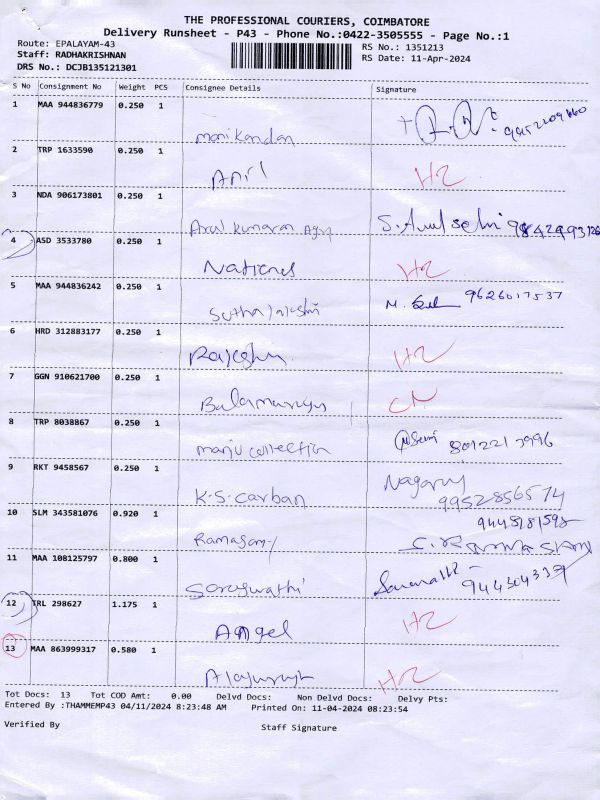 THE PROFESSIONAL COURIERS, COIMBATORE
Delivery Runsheet - P43 - Phone No.:0422-3505555 - Page No.:1
Route: EPALAYAM-43 RS No.: 1351213
Staff: RADHAKRISHNAN RS Date: 11-Apr-2024
DRS No.: DCJB135121301
S No Consignment No Weight PCS Consignee Details Signature
1 MAA 944836779 0.250 1
manikandan
2 TRP 1633590 0.250 1
Anil H2
3 NDA 906173801 0.250 1
Arul kumaran
4 ASD 3533780 0.250 1
H2
5 MAA 944836242 0.250 1
9626017537
6 HRD 312883177 0.250 1
H2
7 GGN 910621700 0.250 1
8 TRP 8038867 0.250 1
manju collection
9 RKT 9458567 0.250 1
K.S. Carban Nagaraj
9952856574
10 SLM 343581076 0.920 1
Ramasamy
11 MAA 108125797 0.800 1
Saraswathi
12 TRL 298627 1.175 1
Angel H2
13 MAA 863999317 0.580 1
H2
Tot Docs: 13 Tot COD Amt: 0.00 Delvd Docs: Non Delvd Docs: Delvy Pts:
Entered By :THAMMEMP43 04/11/2024 8:23:48 AM Printed On: 11-04-2024 08:23:54
Verified By Staff Signature